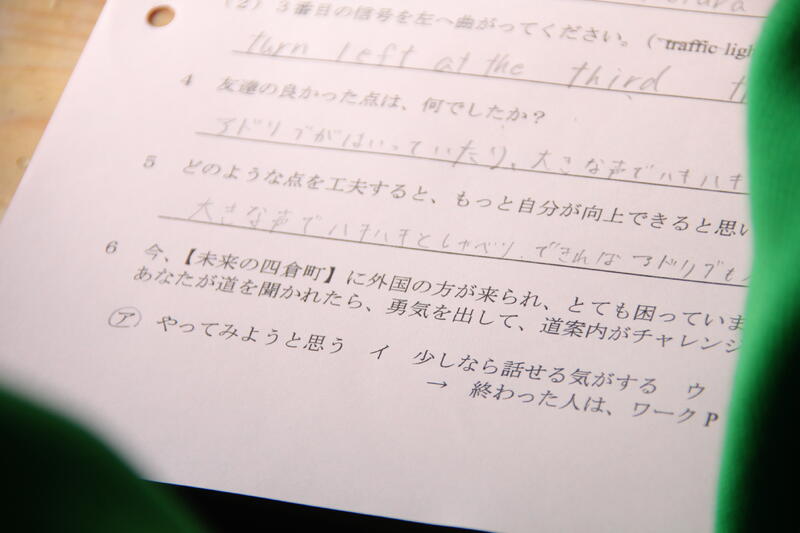 (2) 3番目の信号を左へ曲がってください。( traffic ligh
turn left at the third
4 友達の良かった点は、何でしたか？
アドリブがはいっていたり、大きな声でハキハキ
5 どのような点を工夫すると、もっと自分が向上できると思い
大きな声でハキハキとしゃべり、できればアドリブも
6 今、【未来の四倉町】に外国の方が来られ、とても困っていま
あなたが道を聞かれたら、勇気を出して、道案内がチャレンジ
ア やってみようと思う イ 少しなら話せる気がする ウ
→ 終わった人は、ワークP